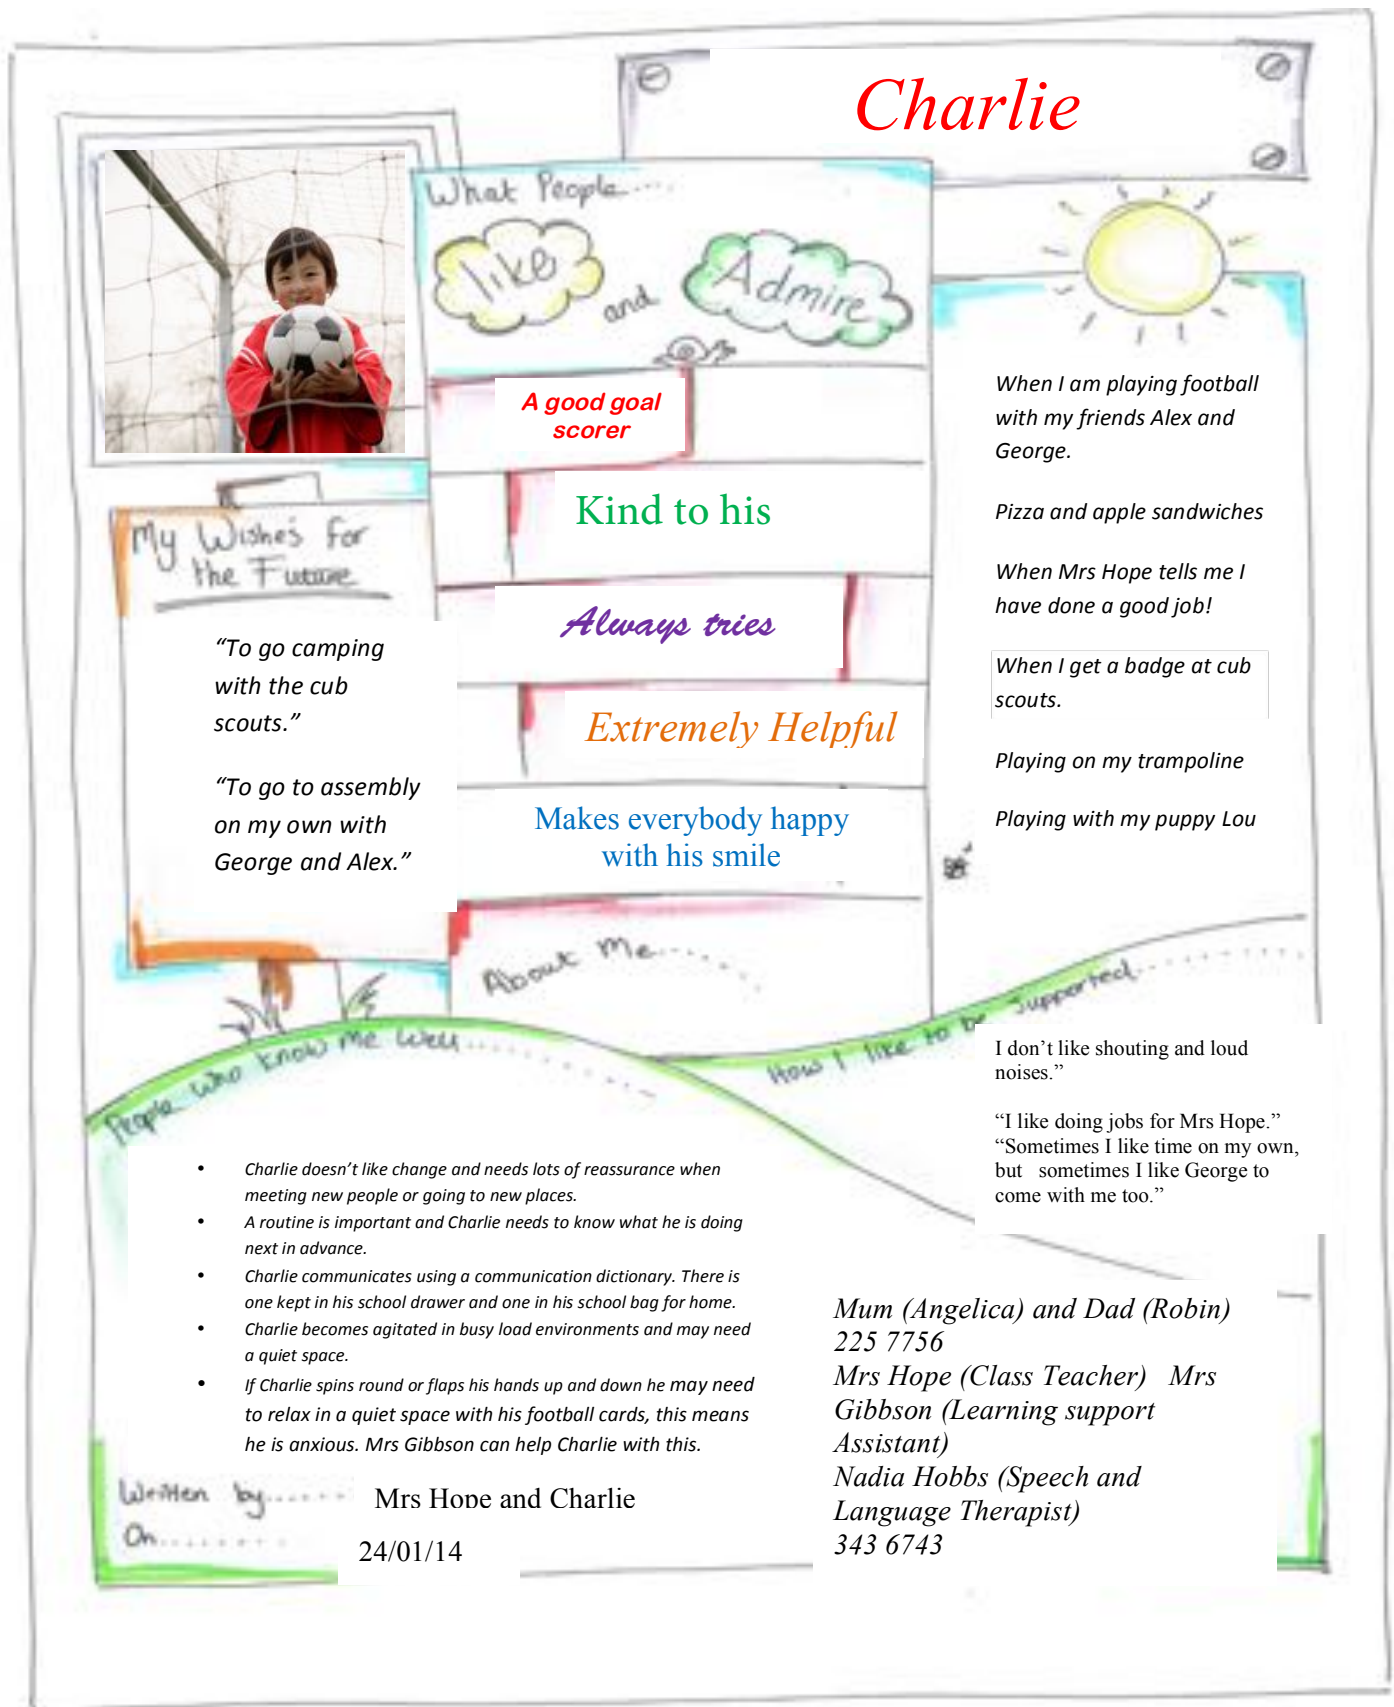 Charlie
What People....
like
and
Admire
A good goal
scorer
Kind to his
Always tries
Extremely Helpful
Makes everybody happy
with his smile
About Me......
My Wishes for
the Future
“To go camping
with the cub
scouts.”
“To go to assembly
on my own with
George and Alex.”
When I am playing football
with my friends Alex and
George.
Pizza and apple sandwiches
When Mrs Hope tells me I
have done a good job!
When I get a badge at cub
scouts.
Playing on my trampoline
Playing with my puppy Lou
How I like to be supported..............
I don’t like shouting and loud
noises.”
“I like doing jobs for Mrs Hope.”
“Sometimes I like time on my own,
but sometimes I like George to
come with me too.”
People who know me well..............
• Charlie doesn’t like change and needs lots of reassurance when
meeting new people or going to new places.
• A routine is important and Charlie needs to know what he is doing
next in advance.
• Charlie communicates using a communication dictionary. There is
one kept in his school drawer and one in his school bag for home.
• Charlie becomes agitated in busy load environments and may need
a quiet space.
• If Charlie spins round or flaps his hands up and down he may need
to relax in a quiet space with his football cards, this means
he is anxious. Mrs Gibbson can help Charlie with this.
Mum (Angelica) and Dad (Robin)
225 7756
Mrs Hope (Class Teacher) Mrs
Gibbson (Learning support
Assistant)
Nadia Hobbs (Speech and
Language Therapist)
343 6743
Written by...... Mrs Hope and Charlie
On........ 24/01/14